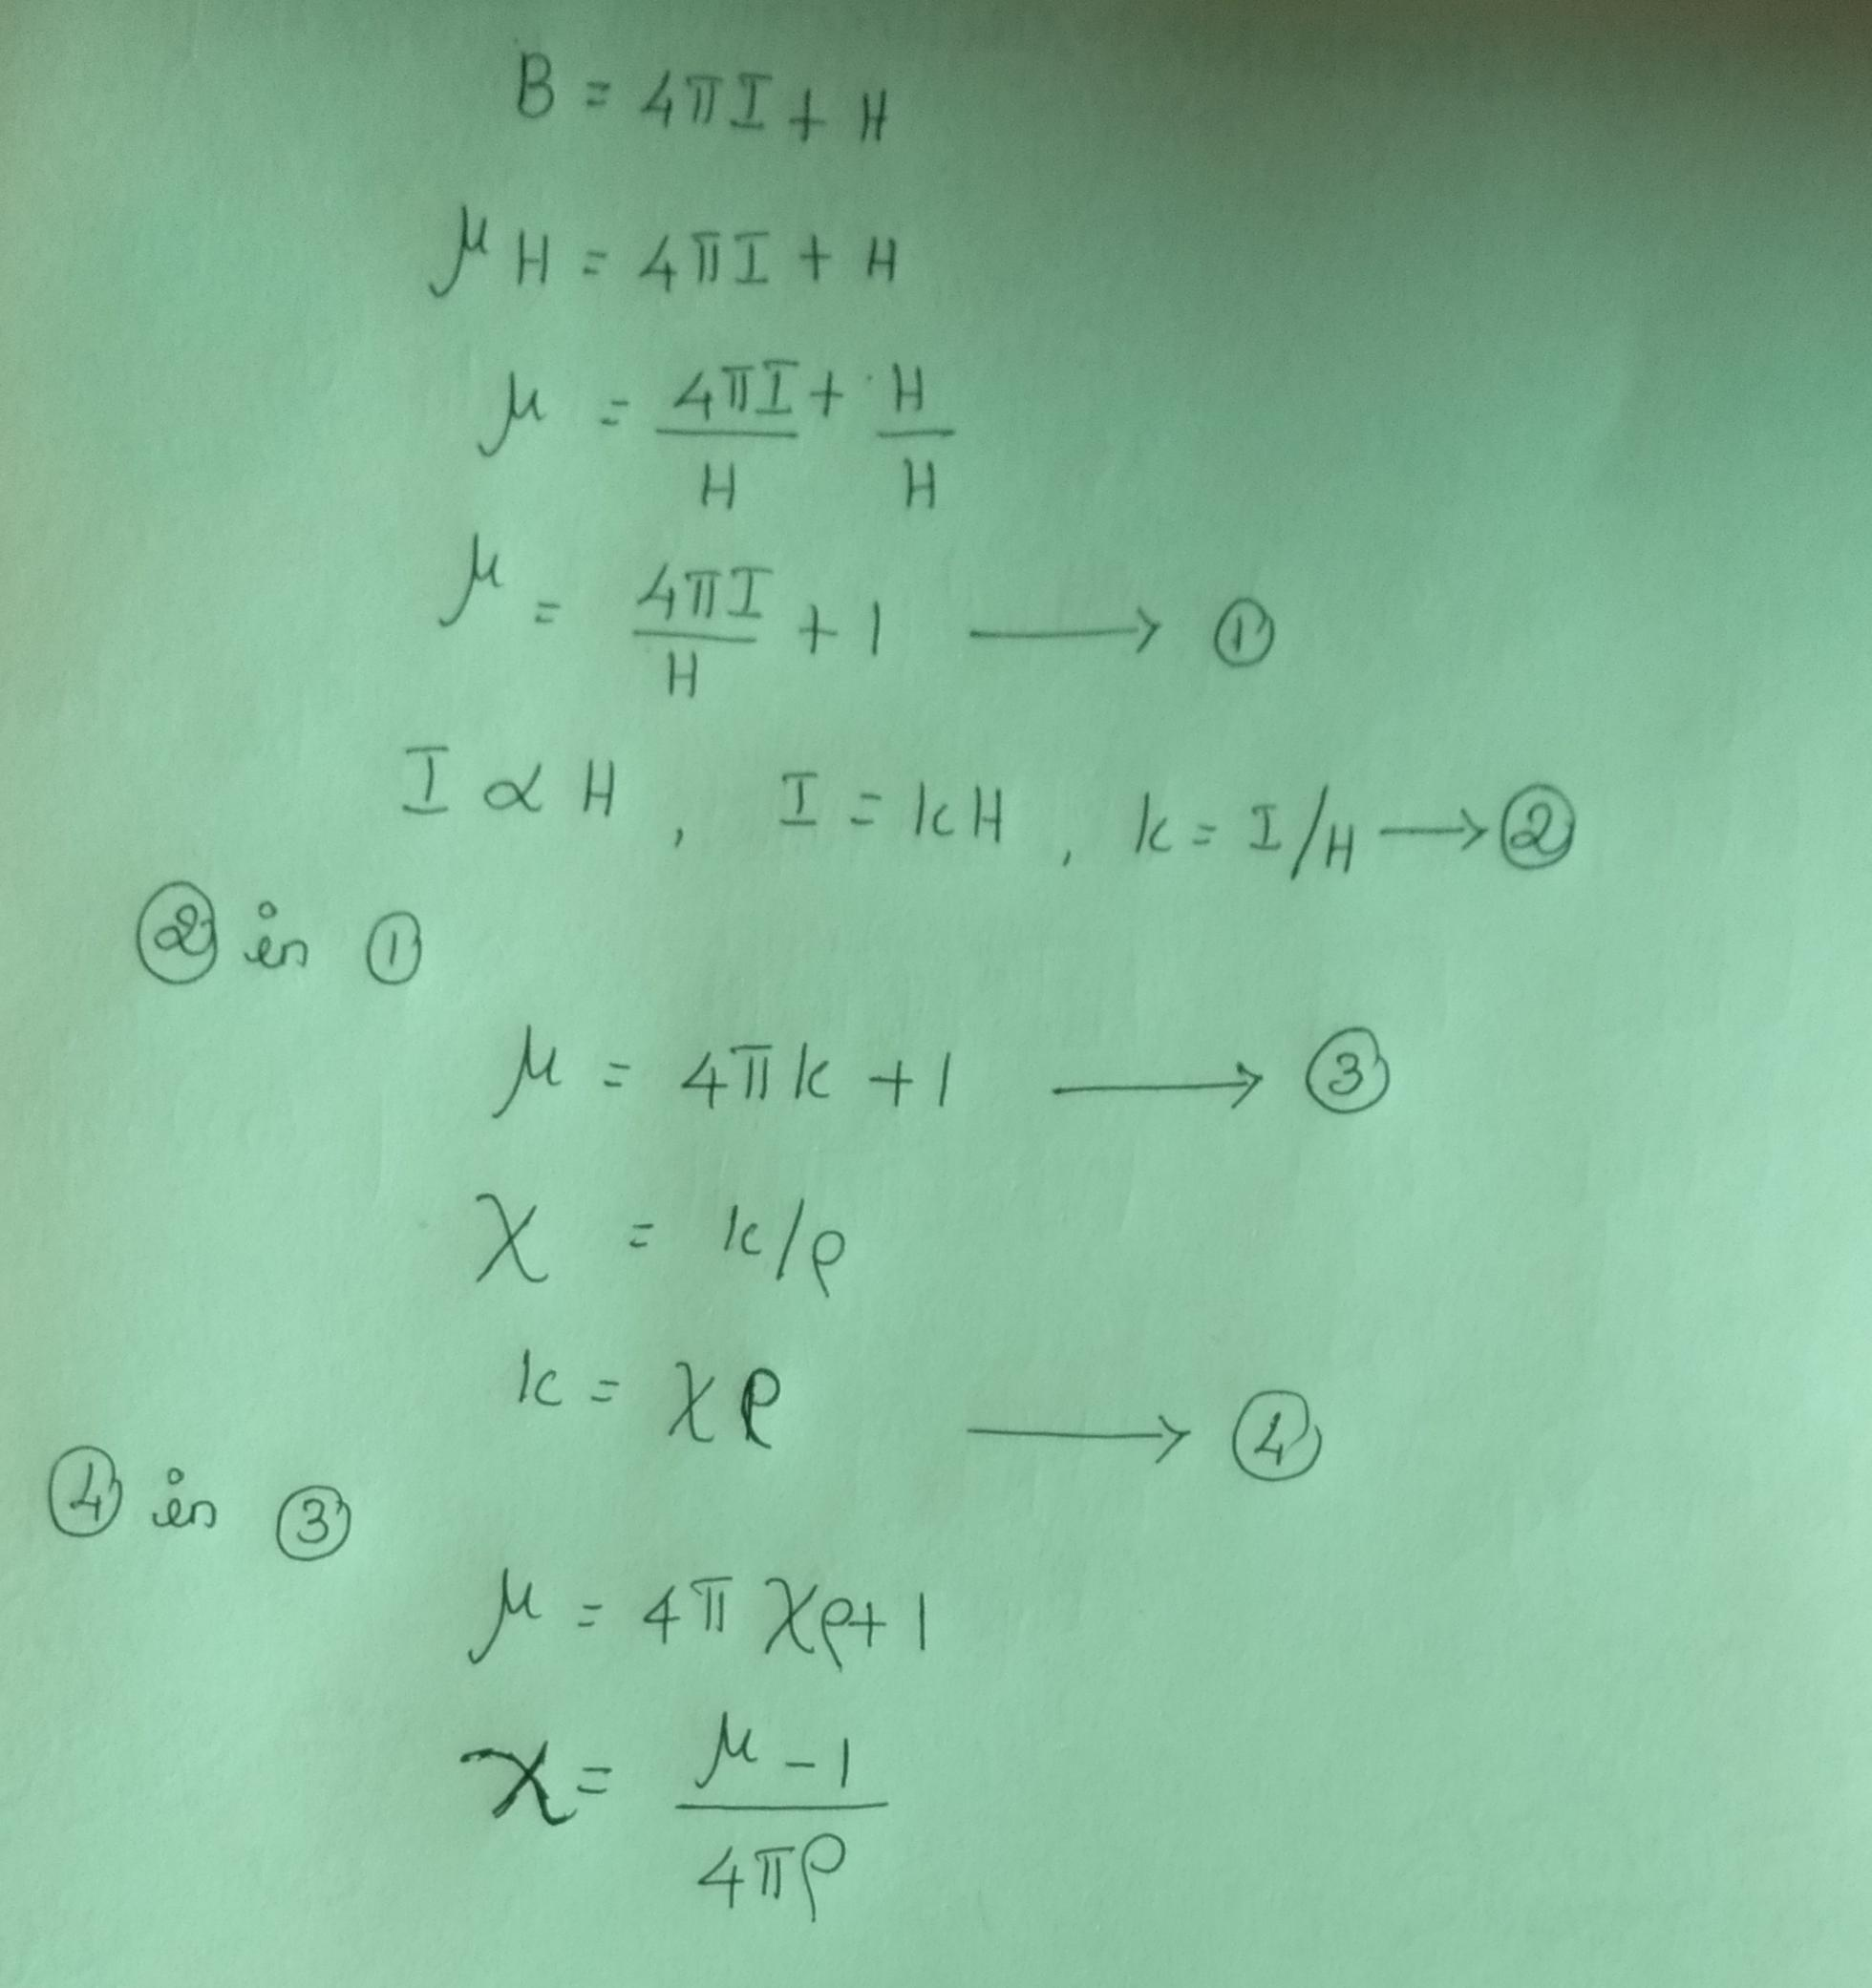 B = 4πI + H
μH = 4πI + H
μ = 4πI/H + H/H
μ = 4πI/H + 1 ⟶ ①
I ∝ H , I = kH , k = I/H ⟶ ②
② in ①
μ = 4πk + 1 ⟶ ③
χ = k/ρ
k = χρ ⟶ ④
④ in ③
μ = 4π χρ + 1
χ = μ - 1 / 4πρ